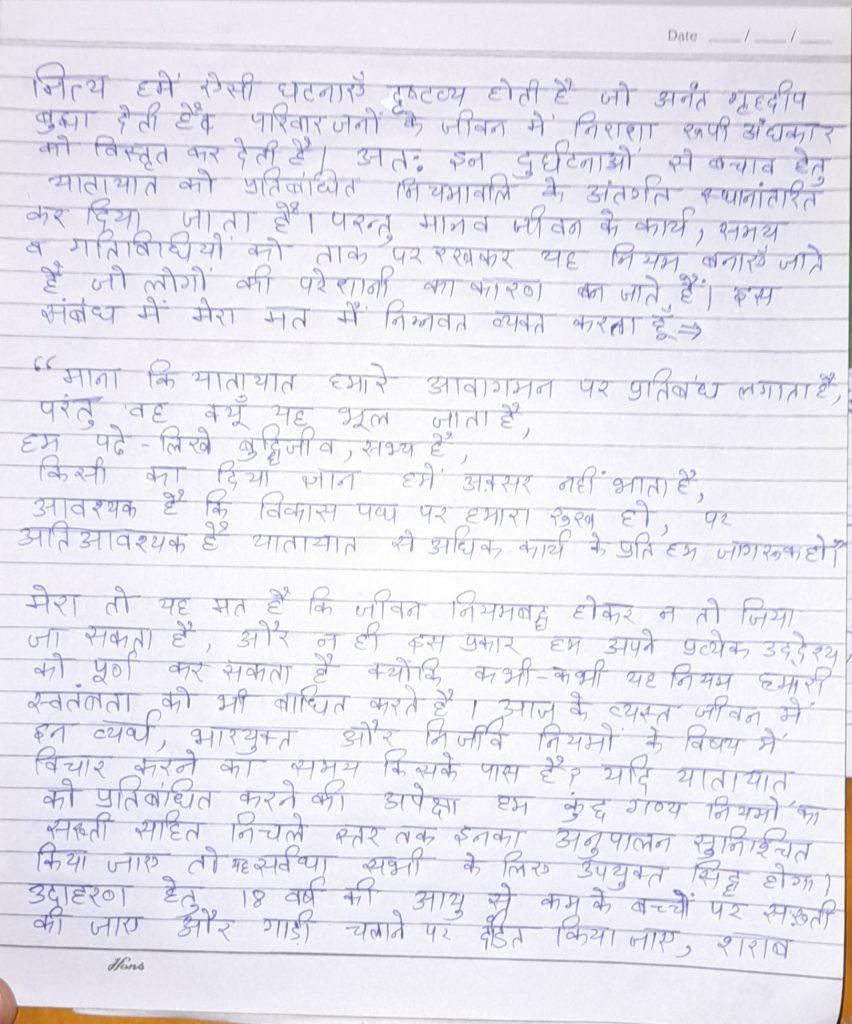 Date __/__/__
नित्य हमें ऐसी घटनाएँ दृष्टव्य होती है जो अनंत गृहदीप
बुझा देती हैं व परिवारजनों के जीवन में निराशा रूपी अंधकार
को विस्तृत कर देती है। अतः इन दुर्घटनाओं से बचाव हेतु
यातायात को प्रतिबंधित नियमावलि के अंतर्गत स्थानांतरित
कर दिया जाता है। परन्तु मानव जीवन के कार्य, समय
व गतिविधियों को ताक पर रखकर यह नियम बनाएँ जाते
हैं जो लोगों की परेशानी का कारण बन जाते हैं। इस
संबंध में मेरा मत मैं निम्नवत व्यक्त करता हूँ ⇒
“माना कि यातायात हमारे आवागमन पर प्रतिबंध लगाता है,
परंतु वह क्यूँ यह भूल जाता है,
हम पढे-लिखे बुद्धिजीव, सभ्य हैं,
किसी का दिया ज्ञान हमें अक्सर नहीं भाता है,
आवश्यक है कि विकास पथ पर हमारा रुख हो, पर
अतिआवश्यक है यातायात से अधिक कार्य के प्रति हम जागरूक हो।”
मेरा तो यह मत है कि जीवन नियमबद्ध होकर न तो जिया
जा सकता है, और न ही इस प्रकार हम अपने प्रत्येक उद्देश्य
को पूर्ण कर सकता है क्योंकि कभी-कभी यह नियम हमारी
स्वतंत्रता को भी बाधित करते है। आज के व्यस्त जीवन में
इन व्यर्थ, भारयुक्त और निर्जीव नियमों के विषय में
विचार करने का समय किसके पास है? यदि यातायात
को प्रतिबंधित करने की अपेक्षा हम कुछ गण्य नियमों का
सख्ती सहित निचले स्तर तक इनका अनुपालन सुनिश्चित
किया जाए तो यह सर्वथा सभी के लिए उपयुक्त सिद्ध होगा।
उदाहरण हेतु 18 वर्ष की आयु से कम के बच्चों पर सख्ती
की जाए और गाडी चलाने पर दंडित किया जाए, शराब
Hans